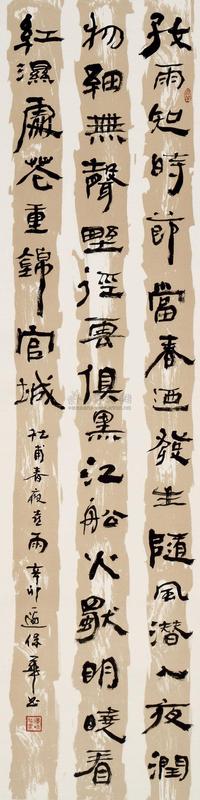 好雨知時節當春迺發生隨風潛入夜潤
物細無聲野徑雲俱黑江船火獨明曉看
紅濕處花重錦官城
杜甫春夜喜雨辛卯保華书